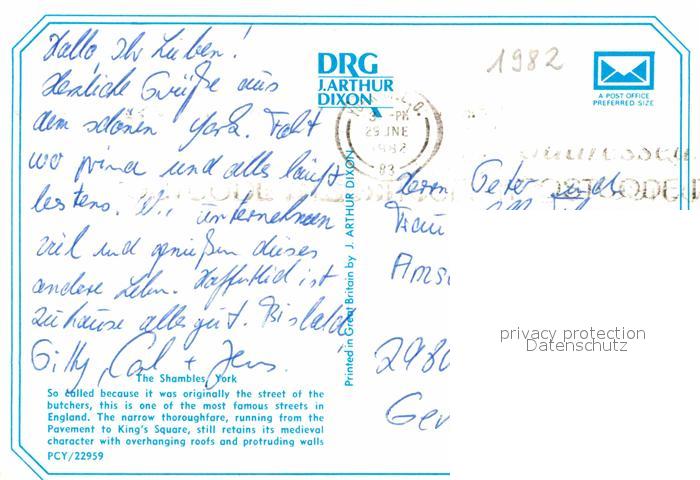 Hallo, Ihr Lieben!
Herzliche Grüße aus
dem schönen York. Fahrt
wo prima und alles läuft
bestens. Wir unternehmen
viel und genießen dieses
andere Leben. Hoffentlich ist
zuhause alles gut. Bis bald
Gilly, Carl + Jens.
The Shambles, York
So called because it was originally the street of the
butchers, this is one of the most famous streets in
England. The narrow thoroughfare, running from the
Pavement to King's Square, still retains its medieval
character with overhanging roofs and protruding walls
PCY/22959
DRG
J.ARTHUR
DIXON
Printed in Great Britain by J. ARTHUR DIXON
1982
A POST OFFICE
PREFERRED SIZE
29 JNE
1982
83
POSTCODE
Herrn Peter
Frau
2980
privacy protection
Datenschutz